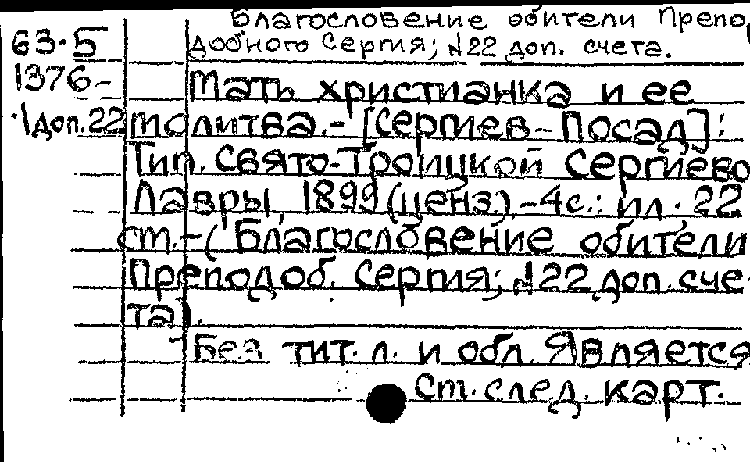 Благословение обители Препо-
63·5 добного Сергия; №22 доп. счета.
1376- Мать христианка и ее
1доп.22 молитва.-[Сергиев-Посад]:
Тип. Свято-Троицкой Сергиево
Лавры, 1899 (ценз).-4с.: ил.; 22
см.-(Благословение обители
Преподоб. Сергия; №22 доп. сче-
та).
Без тит. л. и обл. Является
См. след. карт.